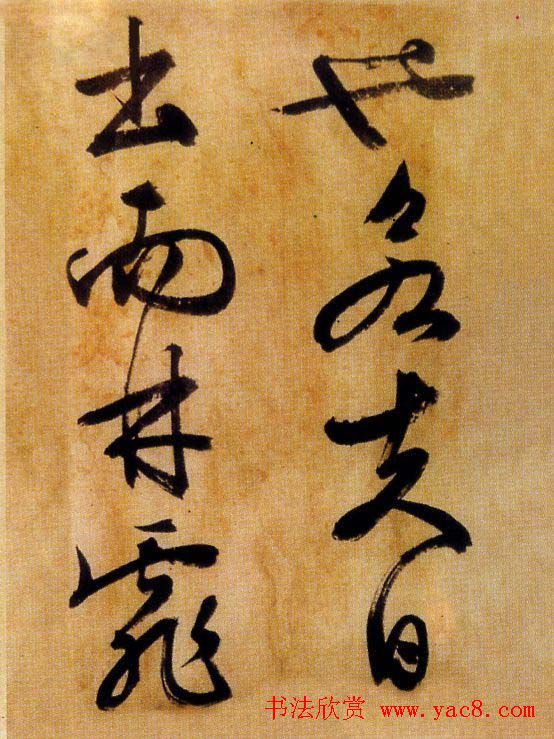 也若夫日
出而林霏
书法欣赏 www.yac8.com